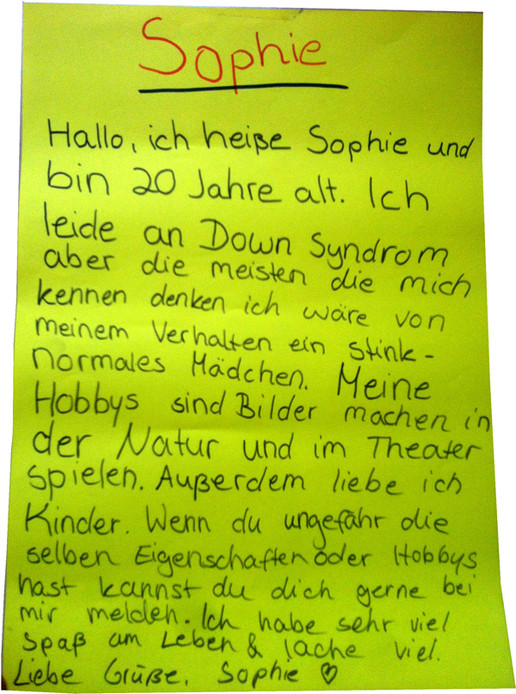 Sophie
Hallo, ich heiße Sophie und
bin 20 Jahre alt. Ich
leide an Down Syndrom
aber die meisten die mich
kennen denken ich wäre von
meinem Verhalten ein stink-
normales Mädchen. Meine
Hobbys sind Bilder machen in
der Natur und im Theater
spielen. Außerdem liebe ich
Kinder. Wenn du ungefähr die
selben Eigenschaften oder Hobbys
hast kannst du dich gerne bei
mir melden. Ich habe sehr viel
Spaß am Leben & lache viel.
Liebe Grüße, Sophie ♡